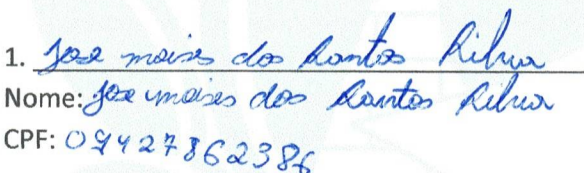 1. Jose moises dos Santos Silva
Nome: Jose moises dos Santos Silva
CPF: 09427862386